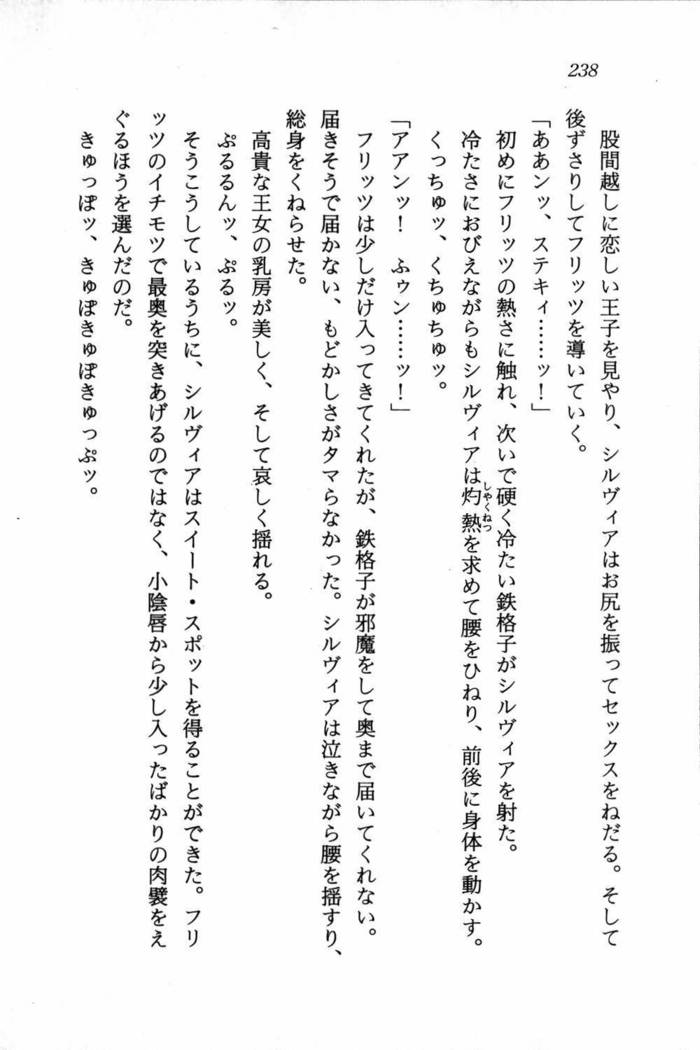 238
股間越しに恋しい王子を見やり、シルヴィアはお尻を振ってセックスをねだる。そして
後ずさりしてフリッツを導いていく。
「ああンッ、ステキィ……ッ！」
初めにフリッツの熱さに触れ、次いで硬く冷たい鉄格子がシルヴィアを射た。
冷たさにおびえながらもシルヴィアは灼熱を求めて腰をひねり、前後に身体を動かす。
しゃくねつ
くっちゅッ、くちゅちゅッ。
「アアンッ！　ふゥン……ッ！」
フリッツは少しだけ入ってきてくれたが、鉄格子が邪魔をして奥まで届いてくれない。
届きそうで届かない、もどかしさがタマらなかった。シルヴィアは泣きながら腰を揺すり、
総身をくねらせた。
高貴な王女の乳房が美しく、そして哀しく揺れる。
ぷるるんッ、ぷるッ。
そうこうしているうちに、シルヴィアはスイート・スポットを得ることができた。フリ
ッツのイチモツで最奥を突きあげるのではなく、小陰唇から少し入ったばかりの肉襞をえ
ぐるほうを選んだのだ。
きゅっぽッ、きゅぽきゅぽきゅっぷッ。